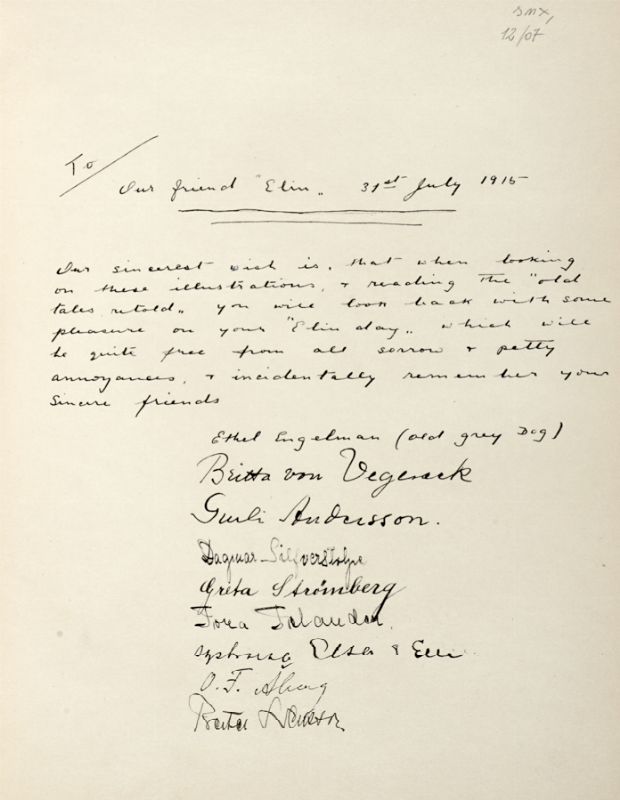 12/07
To
Our friend "Elin„ 31st July 1915
Our sincerest wish is, that when looking
on these illustrations, & reading the "old
tales retold„ you will look back with some
pleasure on your "Elin day„ which will
be quite free from all sorrow & petty
annoyances, & incidentally remember your
Sincere friends
Ethel Engelman (old grey Dog)
Britta von Vegesack
Gurli Andersson.
Dagmar Silfverstolpe
Greta Strömberg
Tora
Elsa &
O. F. Åberg